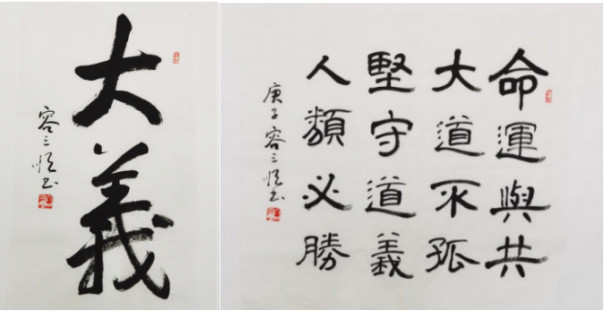 大義
容三恒书
命運與共
大道不孤
堅守道義
人類必勝
庚子容三恒书